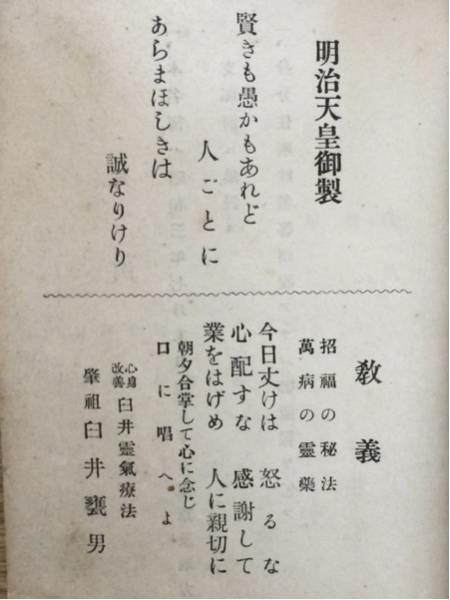 明治天皇御製
賢きも愚かもあれど
人ごとに
あらまほしきは
誠なりけり
教義
招福の秘法
萬病の靈藥
今日丈けは 怒るな
心配すな 感謝して
業をはげめ 人に親切に
朝夕合掌して心に念じ
口に唱へよ
心身改善 臼井靈氣療法
肇祖 臼井甕男